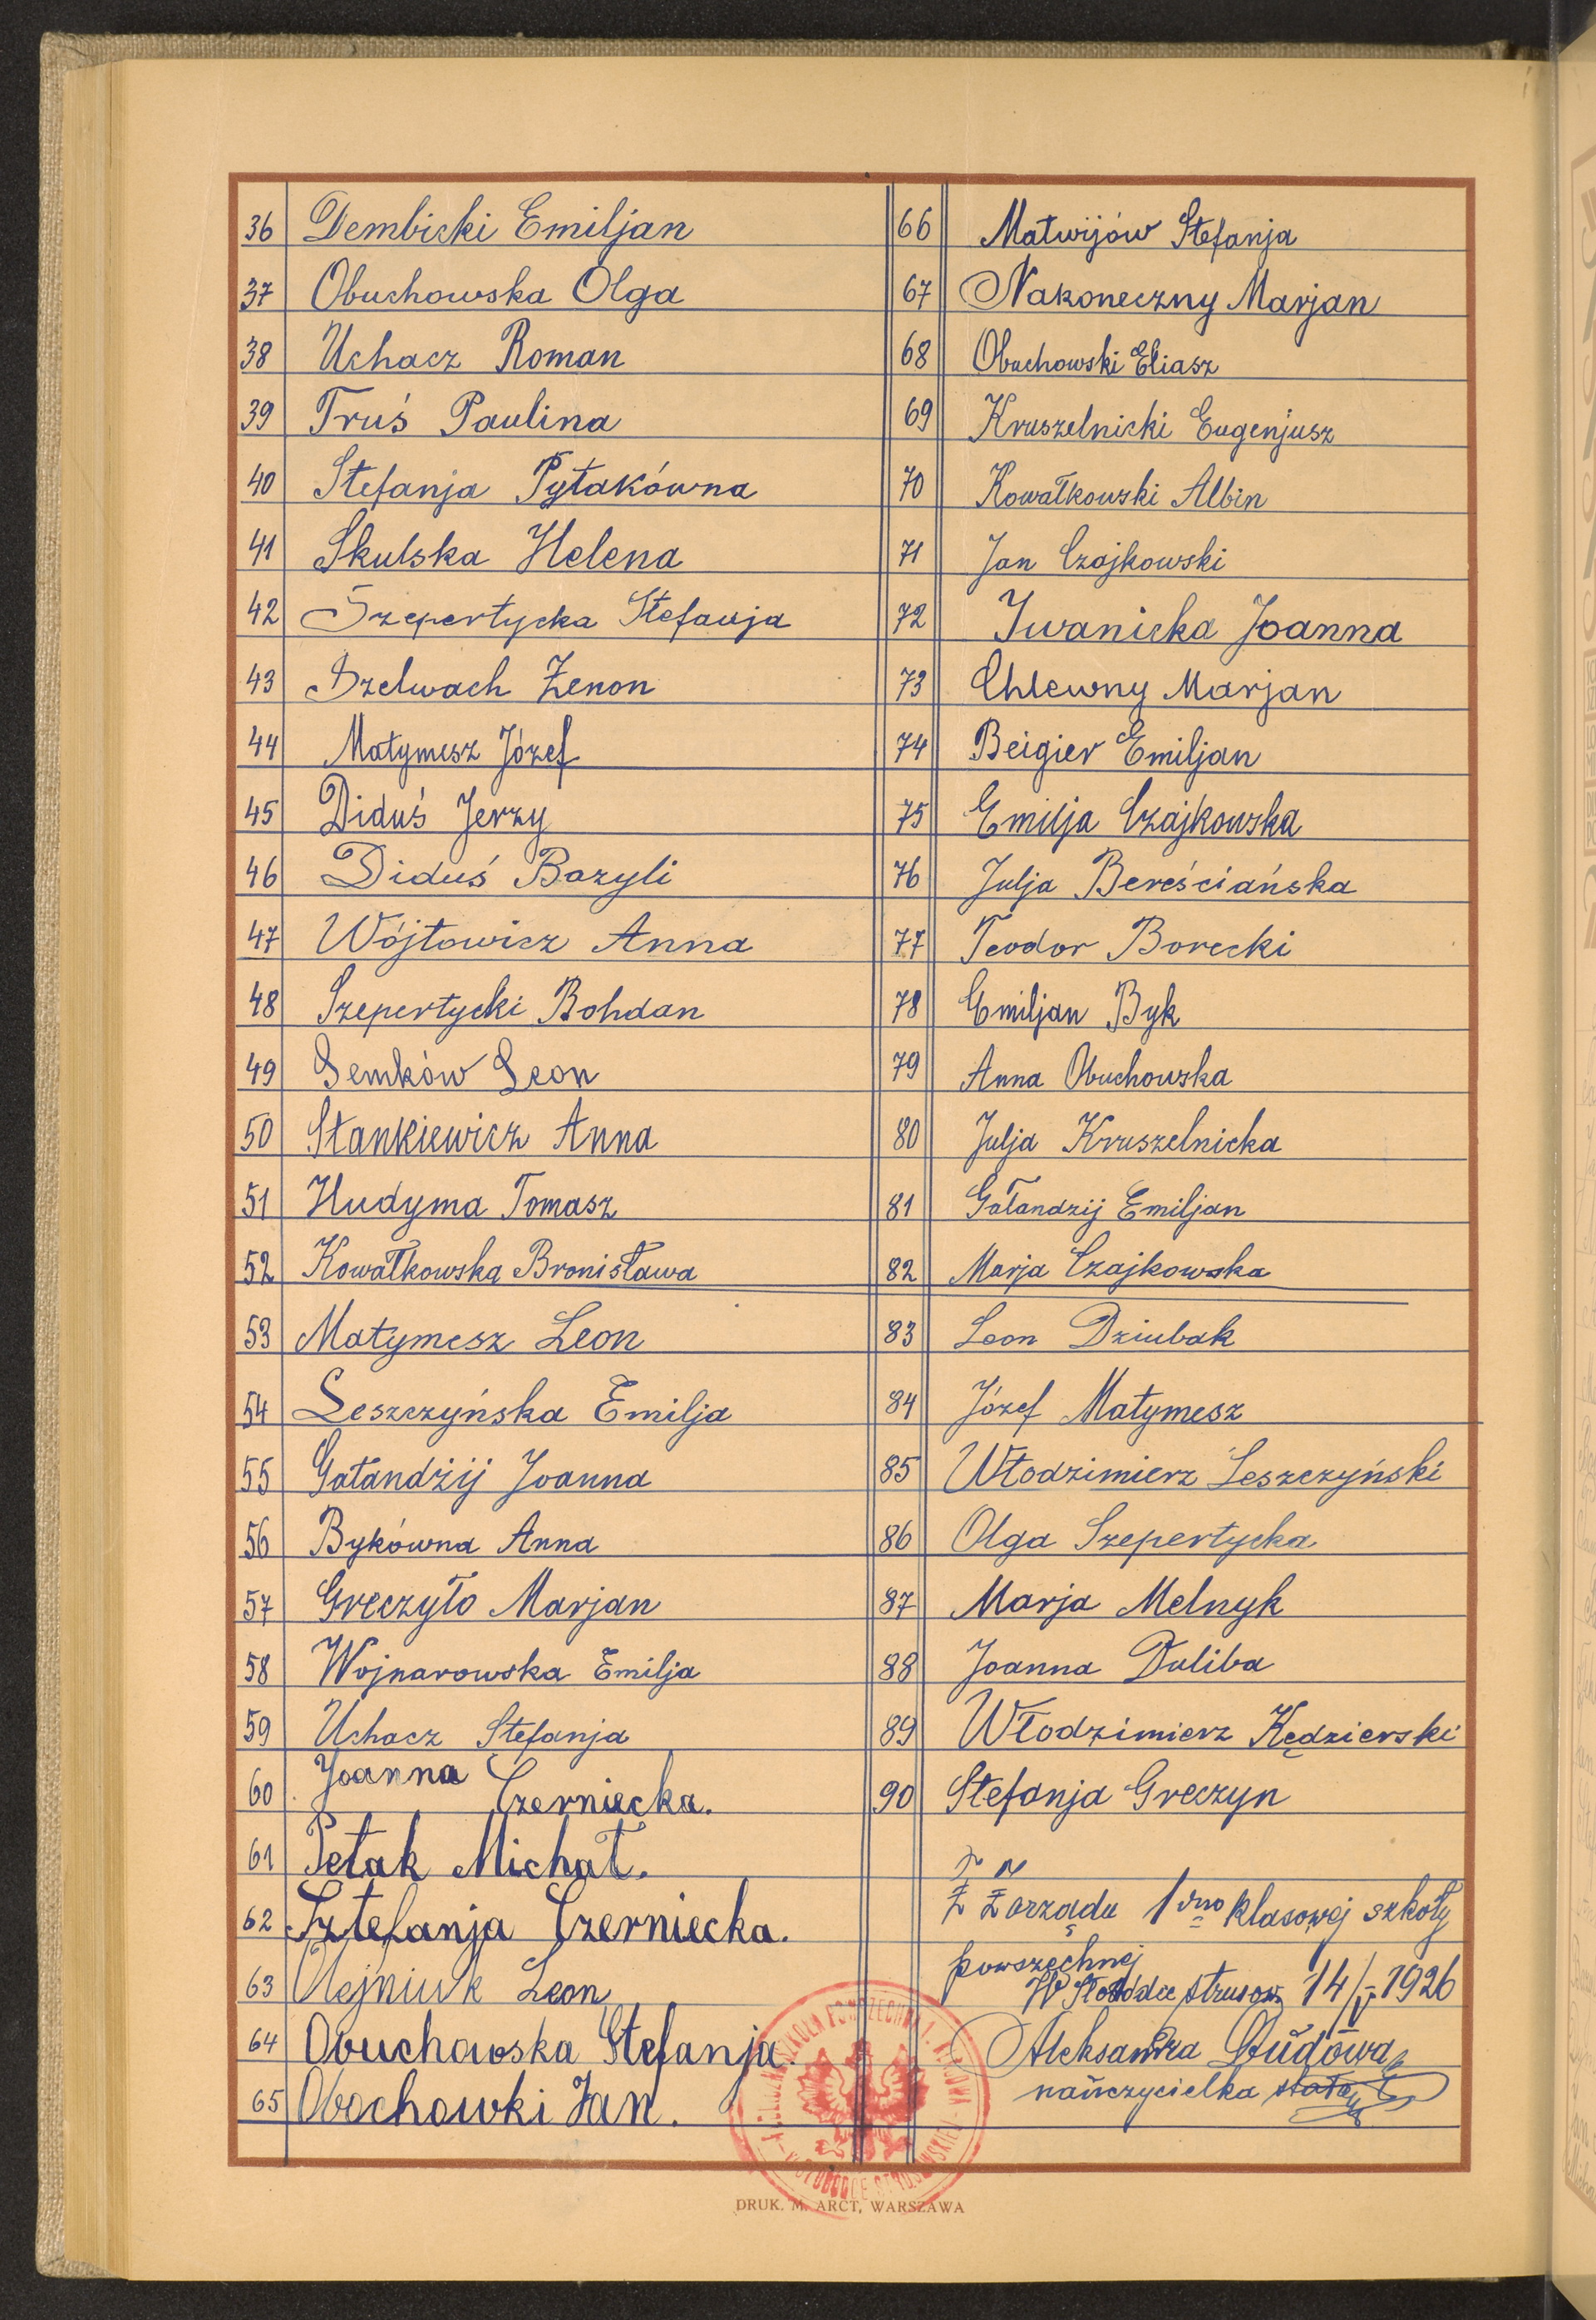 36 Dembicki Emiljan
37 Obuchowska Olga
38 Uchacz Roman
39 Truś Paulina
40 Stefanja Pytakówna
41 Skulska Helena
42 Szepertycka Stefanja
43 Szelwach Zenon
44 Matymesz Józef
45 Diduś Jerzy
46 Diduś Bazyli
47 Wójtowicz Anna
48 Szepertycki Bohdan
49 Semków Leon
50 Stankiewicz Anna
51 Hudyma Tomasz
52 Kowałkowska Bronisława
53 Matymesz Leon
54 Leszczyńska Emilja
55 Gałandzij Joanna
56 Bykówna Anna
57 Greczyło Marjan
58 Wojnarowska Emilja
59 Uchacz Stefanja
60 Joanna Czerniecka.
61 Petak Michał.
62 Sztefanja Czerniecka.
63 Olejniuk Leon
64 Obuchowska Stefanja.
65 Obochowki Jan.
66 Matwijów Stefanja
67 Nakoneczny Marjan
68 Obuchowski Eliasz
69 Kruszelnicki Eugenjusz
70 Kowałkowski Albin
71 Jan Czajkowski
72 Iwanicka Joanna
73 Chlewny Marjan
74 Beigier Emiljan
75 Emilja Czajkowska
76 Julja Bereściańska
77 Teodor Borecki
78 Emiljan Byk
79 Anna Obuchowska
80 Julja Kruszelnicka
81 Gałandzij Emiljan
82 Marja Czajkowska
83 Leon Dziubak
84 Józef Matymesz
85 Włodzimierz Leszczyński
86 Olga Szepertycka
87 Marja Melnyk
88 Joanna Duliba
89 Włodzimierz Kędzierski
90 Stefanja Greczyn
Z Zarządu 1dno klasowej szkoły
powszechnej
W Słobódce strusow. 14/V 1926
Aleksandra Dudowa
nauczycielka stała
DRUK. M. ARCT, WARSZAWA